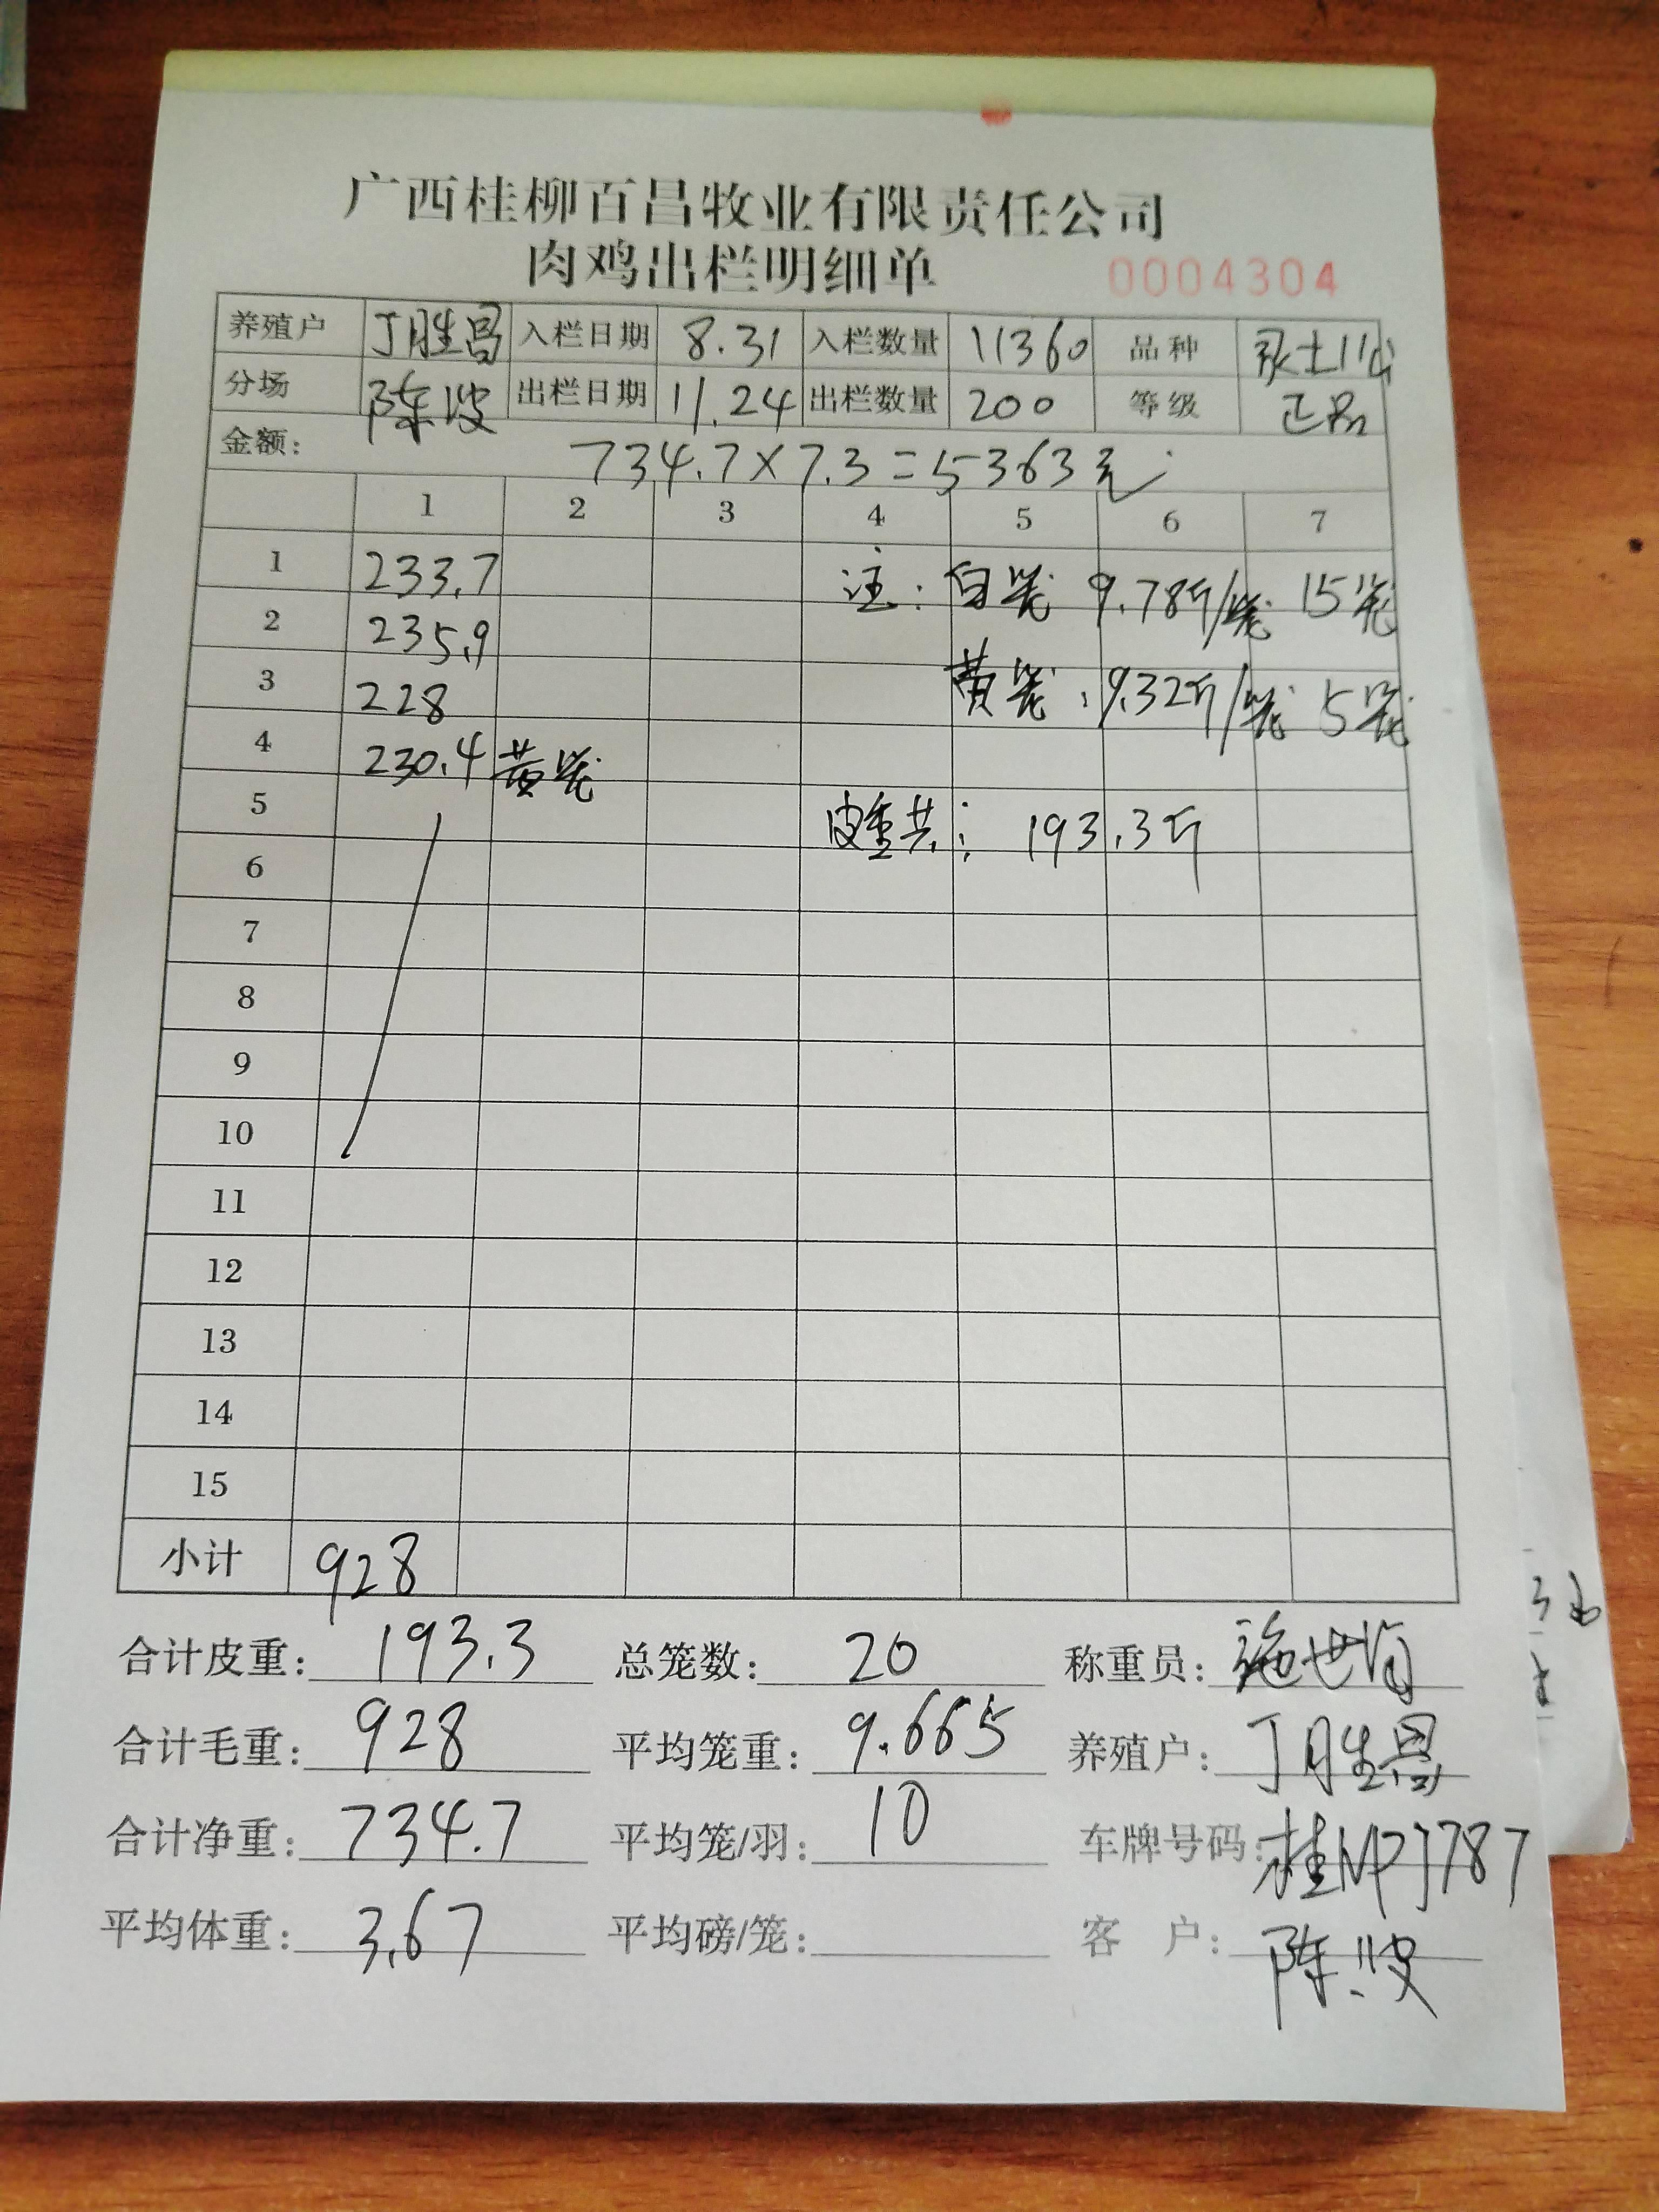 广西桂柳百昌牧业有限责任公司
肉鸡出栏明细单 0004304
养殖户 丁胜昌 入栏日期 8.31 入栏数量 11360 品种
分场 陈波 出栏日期 11.24 出栏数量 200 等级 正品
金额: 734.7×7.3=5363元
1 2 3 4 5 6 7
1 233.7 注: 白笼 9.78斤/笼 15笼
2 235.9
3 228 黄笼: 9.32斤/笼 5笼
4 230.4 黄笼
5 皮重共: 193.3斤
6
7
8
9
10
11
12
13
14
15
小计 928
合计皮重: 193.3 总笼数: 20 称重员:
合计毛重: 928 平均笼重: 9.665 养殖户: 丁胜昌
合计净重: 734.7 平均笼/羽: 10 车牌号码: 桂MPJ787
平均体重: 3.67 平均磅/笼: 客 户: 陈波